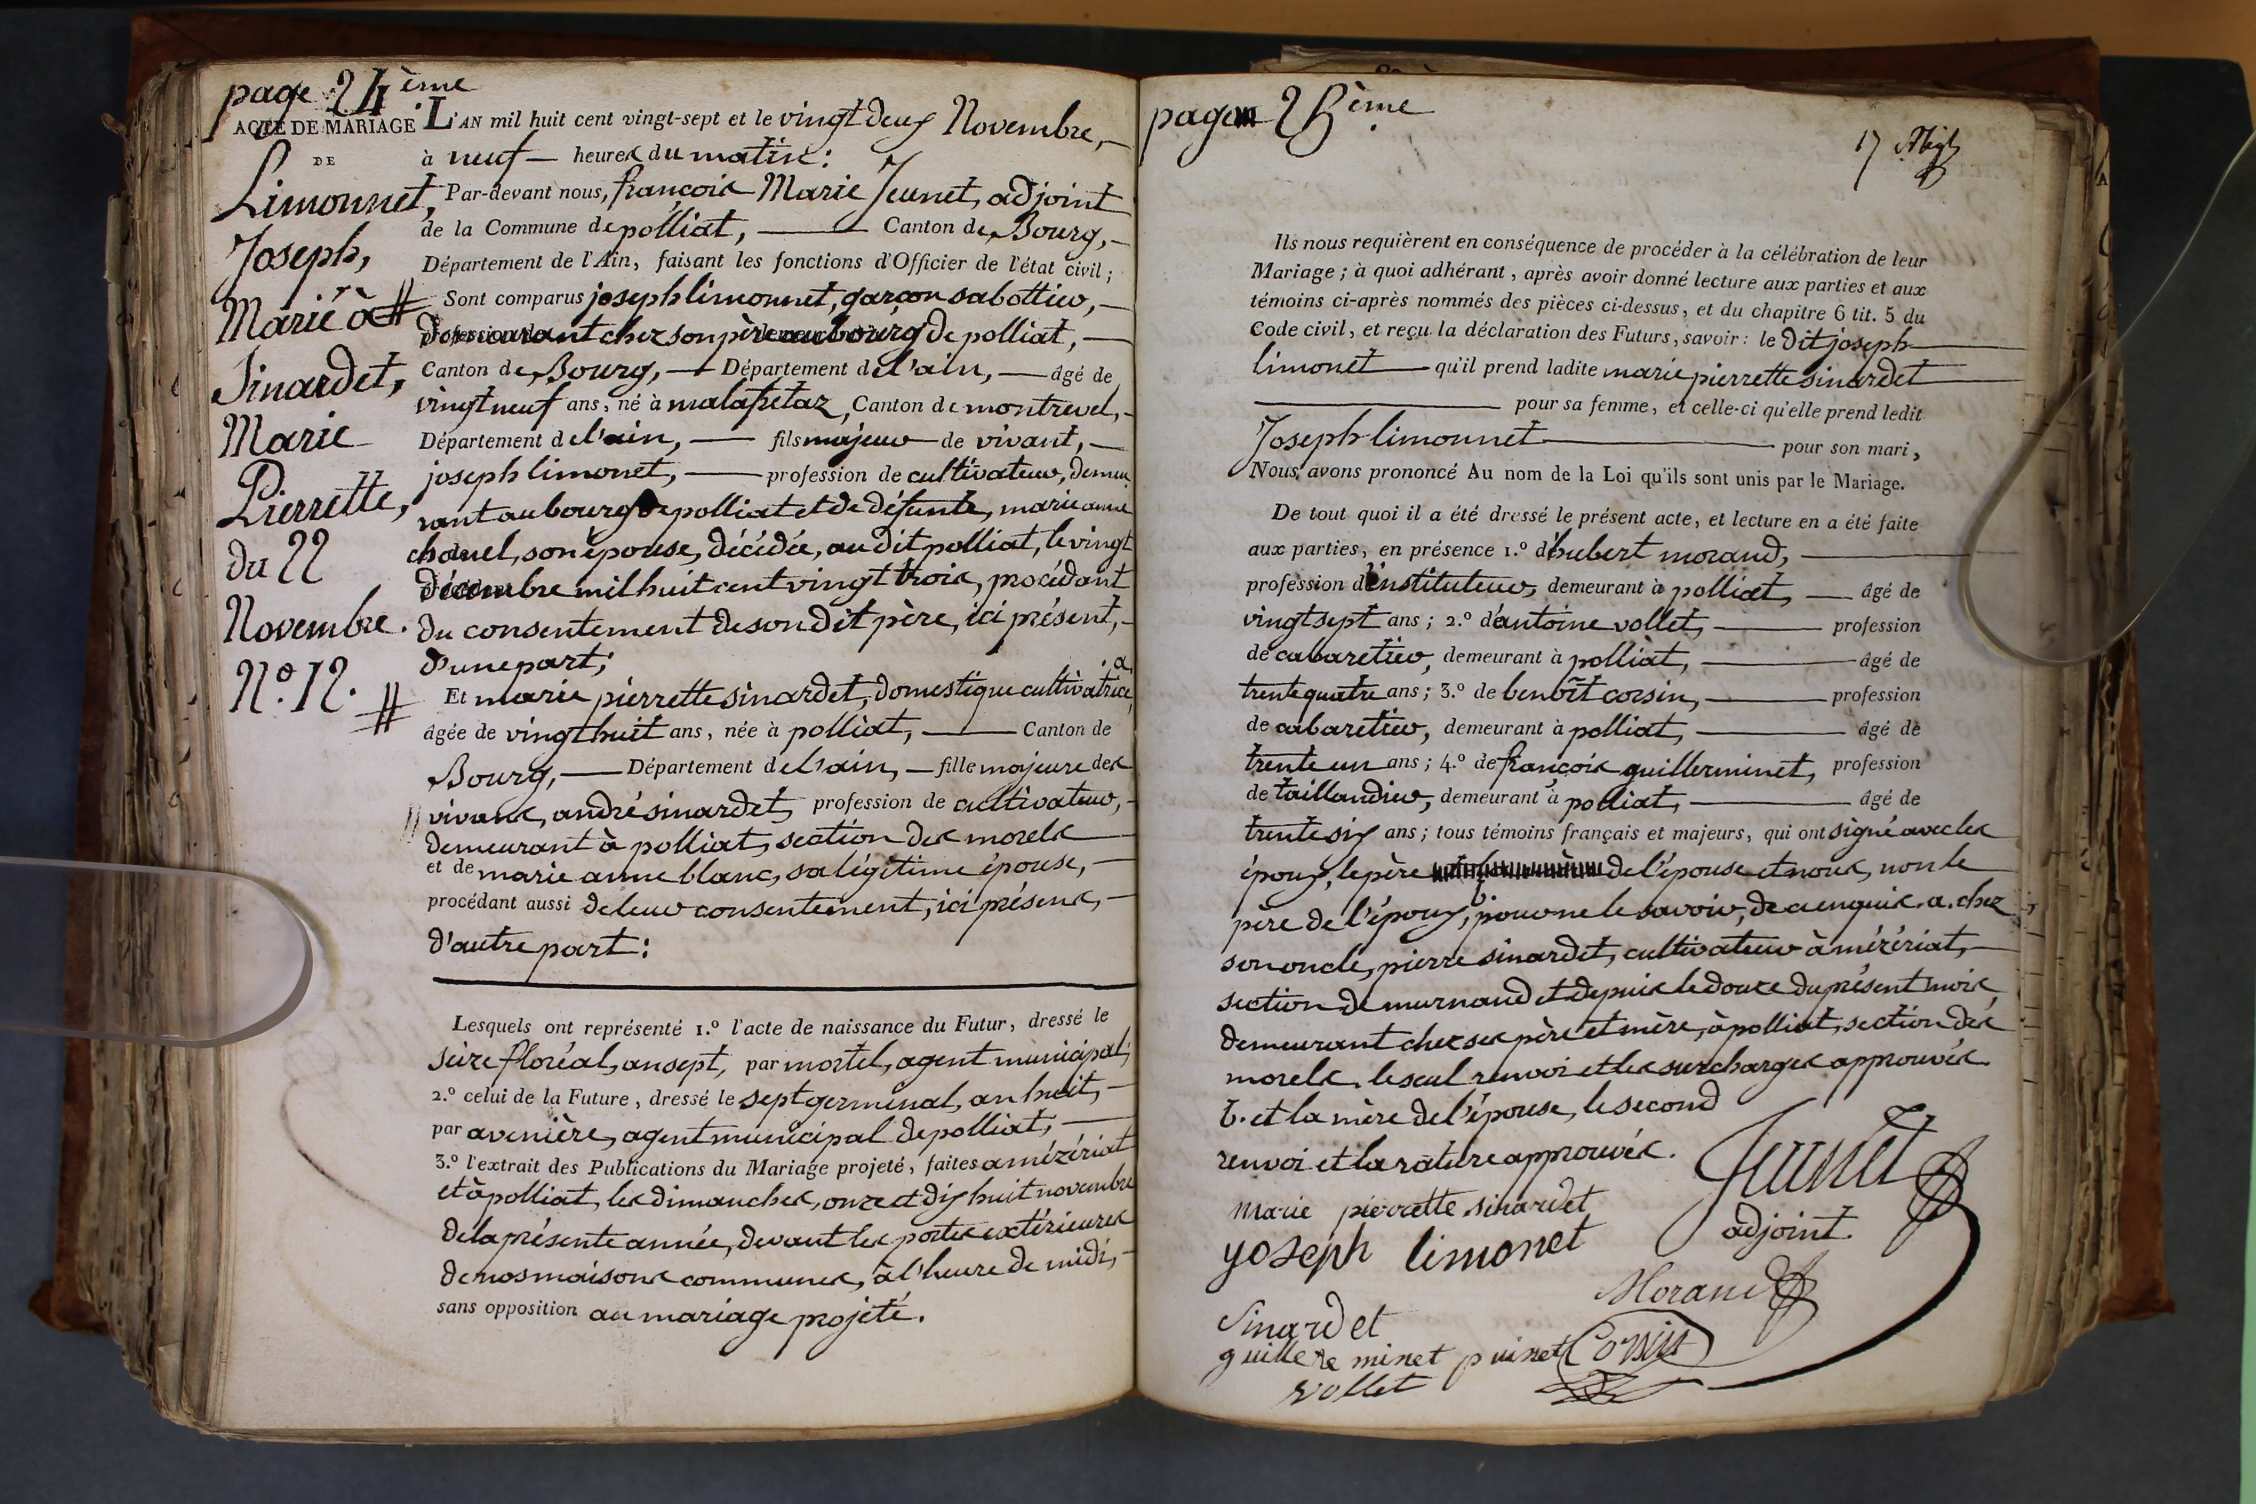 page 24ème
ACTE DE MARIAGE
DE
Limonnet,
Joseph,
Marié à
Sinardet,
Marie
Pierrette,
du 22
Novembre.
N.º 12.
L'AN mil huit cent vingt-sept et le vingt deux Novembre,
à neuf heures du matin:
Par-devant nous, françois Marie Jeunet, adjoint
de la Commune de polliat, Canton de Bourg,
Département de l'Ain, faisant les fonctions d'Officier de l'état civil;
Sont comparus joseph limonnet, garçon sabottier,
demeurant chez son père au bourg de polliat,
Canton de Bourg, Département de l'ain, âgé de
vingt neuf ans, né à malafretaz, Canton de montrevel,
Département de l'ain, fils majeur de vivant,
joseph limonet, profession de cultivateur, demeu
rant au bourg de polliat et de défunte, marie anne
chanel, son épouse, décédée, au dit polliat, le vingt
décembre mil huit cent vingt trois, procédant
du consentement de son dit père, ici présent,
d'une part;
Et marie pierrette sinardet, domestique cultivatrice, a
âgée de vingt huit ans, née à polliat, Canton de
Bourg, Département de l'ain, fille majeure des
vivans, andré sinardet, profession de cultivateur,
demeurant à polliat, section des morels
et de marie anne blanc, sa légitime épouse,
procédant aussi de leur consentement, ici présens,
d'autre part:
Lesquels ont représenté 1.º l'acte de naissance du Futur, dressé le
seize floréal, an sept, par mortel, agent municipal;
2.º celui de la Future, dressé le sept germinal, an huit,
par avenière, agent municipal de polliat,
3.º l'extrait des Publications du Mariage projeté, faites a mézériat
et à polliat, les dimanches, onze et dix huit novembre
de la présente année, devant les portes extérieures
de nos maisons communes, à l'heure de midi,
sans opposition au mariage projeté.
page 25ème
17
Ils nous requièrent en conséquence de procéder à la célébration de leur
Mariage; à quoi adhérant, après avoir donné lecture aux parties et aux
témoins ci-après nommés des pièces ci-dessus, et du chapitre 6 tit. 5 du
Code civil, et reçu la déclaration des Futurs, savoir: le dit joseph
limonet qu'il prend ladite marie pierrette sinardet
pour sa femme, et celle-ci qu'elle prend ledit
Joseph limonnet pour son mari,
Nous avons prononcé Au nom de la Loi qu'ils sont unis par le Mariage.
De tout quoi il a été dressé le présent acte, et lecture en a été faite
aux parties, en présence 1.º d'hubert morand,
profession d'instituteur, demeurant à polliat, âgé de
vingt sept ans; 2.º d'antoine vollet, profession
de cabaretier, demeurant à polliat, âgé de
trente quatre ans; 3.º de benoît corsin, profession
de cabaretier, demeurant à polliat, âgé de
trente un ans; 4.º de françois guillerminet, profession
de taillandier, demeurant à polliat, âgé de
trente six ans; tous témoins français et majeurs, qui ont signé avec les
époux, le père de l'épouse et nous, non le
père de l'époux, b pour ne le savoir, de ce enquis. a. chez
son oncle, pierre sinardet, cultivateur à mézériat,
section de murnand et depuis le douze du présent mois,
demeurant chez ses père et mère, à polliat, section des
morels. le seul renvoi et les surcharges approuvés
b. et la mère de l'épouse, le second
renvoi et la rature approuvés.
Jeunet
adjoint.
marie pierrette sinardet
yoseph limonet
Morand
Sinardet
guillereminet puinet Corsin
vollet